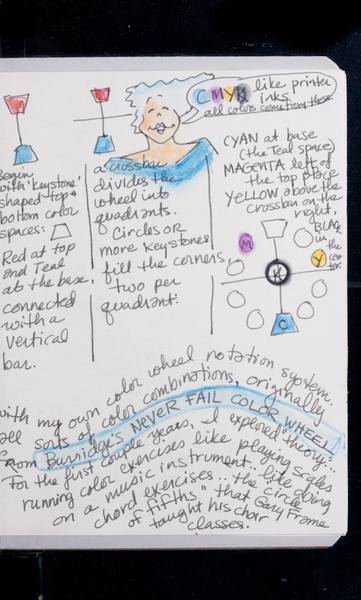 CMYK like printer
inks
all colors come from these
Begin
with 'keystone'
shaped top +
bottom color
spaces:
Red at top
and Teal
at the base,
connected
with a
vertical
bar.
a crossbar
divides the
wheel into
quadrants.
Circles OR
more Keystones
fill the corners,
two per
quadrant.
CYAN at base
(the Teal space)
MAGENTA left of
the top place
YELLOW above the
crossbar on the
right,
BLACK
in the
center.
M
Y
K
C
with my own color wheel notation system.
all sorts of color combinations, originally
From Burridge's NEVER FAIL COLOR WHEEL,
For the first couple years, I explored "theory"...
running color exercises like playing scales
on a music instrument.. like doing
chord exercises .. the "circle
of fifths" that Gary Frame
taught his choir
classes.